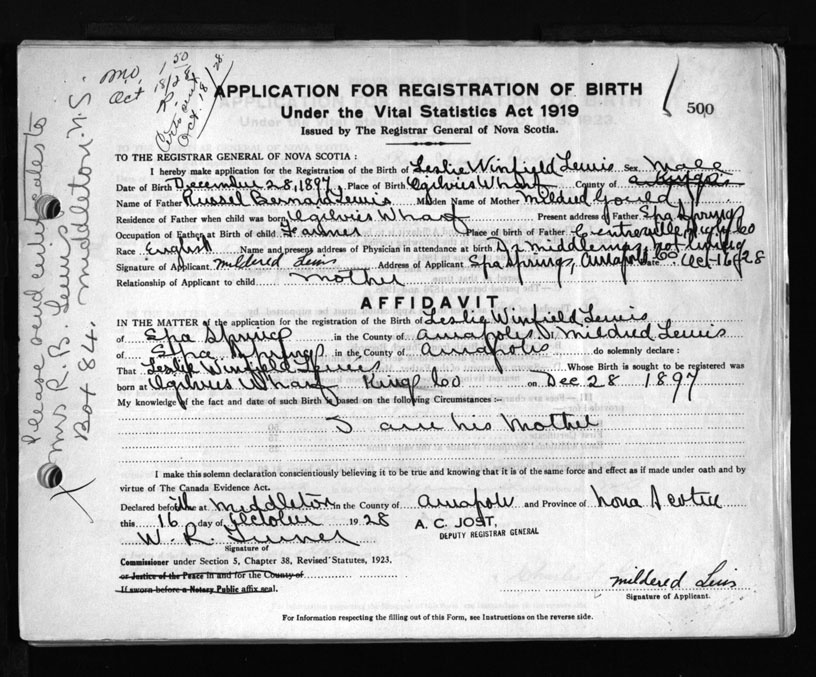 Mo, 1 50
Oct 18/28
Oct. 18/28
Please send certificates to
Mrs R. B. Lewis
Box 84. Middleton N.S.
APPLICATION FOR REGISTRATION OF BIRTH
Under the Vital Statistics Act 1919
Issued by The Registrar General of Nova Scotia.
500
TO THE REGISTRAR GENERAL OF NOVA SCOTIA :
I hereby make application for the Registration of the Birth of Leslie Winfield Lewis Sex Male
Date of Birth December 28, 1897 Place of Birth Ogilvies Wharf County of Kings
Name of Father Russel Bernard Lewis Maiden Name of Mother Mildred Gould
Residence of Father when child was born Ogilvies Wharf Present address of Father Spa Springs
Occupation of Father at Birth of child Farmer Place of birth of Father Centreville Digby Co
Race English Name and present address of Physician in attendance at birth Dr Middlemas, not living
Signature of Applicant Mildered Lewis Address of Applicant Spa Springs, Annapolis Co Date Oct 16/28
Relationship of Applicant to child Mother
AFFIDAVIT
IN THE MATTER of the application for the registration of the Birth of Leslie Winfield Lewis
of Spa Springs in the County of Annapolis I, Mildred Lewis
of Spa Springs in the County of Annapolis do solemnly declare :
That Leslie Winfield Lewis Whose Birth is sought to be registered was
born at Ogilvies Wharf Kings Co on Dec 28 1897
My knowledge of the fact and date of such Birth is based on the following Circumstances :-
I am his Mother
I make this solemn declaration conscientiously believing it to be true and knowing that it is of the same force and effect as if made under oath and by
virtue of The Canada Evidence Act.
Declared before me at Middleton in the County of Annapolis and Province of Nova Scotia
this 16 day of October 1928
A. C. JOST,
DEPUTY REGISTRAR GENERAL
W. R. Turner
Signature of
Commissioner under Section 5, Chapter 38, Revised Statutes, 1923.
or Justice of the Peace in and for the County of
If sworn before a Notary Public affix seal.
Mildered Lewis
Signature of Applicant.
For Information respecting the filling out of this Form, see Instructions on the reverse side.